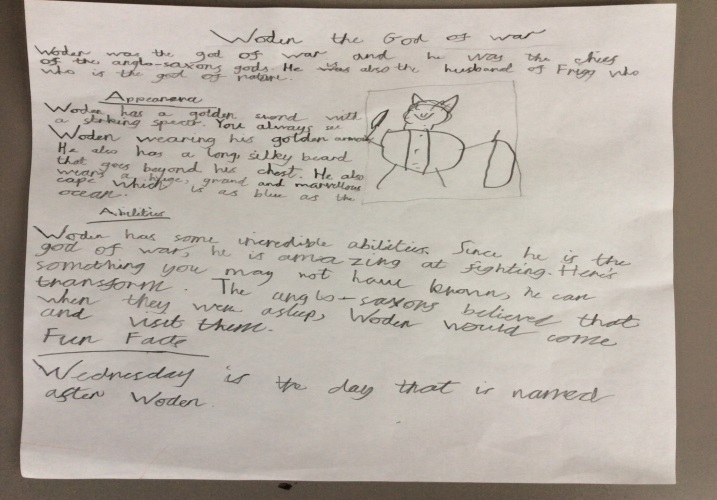 Woden the God of war
Woden was the god of war and he was the chief
of the anglo-saxons gods. He is also the husband of Frigg who
who is the god of nature.
Appearance
Woden has a golden sword with
a striking spear. You always see
Woden wearing his golden armour
He also has a long silky beard
that goes beyond his chest. He also
wears a huge, grand and marvellous
cape which is as blue as the
ocean.
Abilities
Woden has some incredible abilities. Since he is the
god of war, he is amazing at fighting. Here's
something you may not have known, he can
transform. The anglo-saxons believed that
when they were asleep, Woden would come
and visit them.
Fun Facts
Wednesday is the day that is named
after Woden